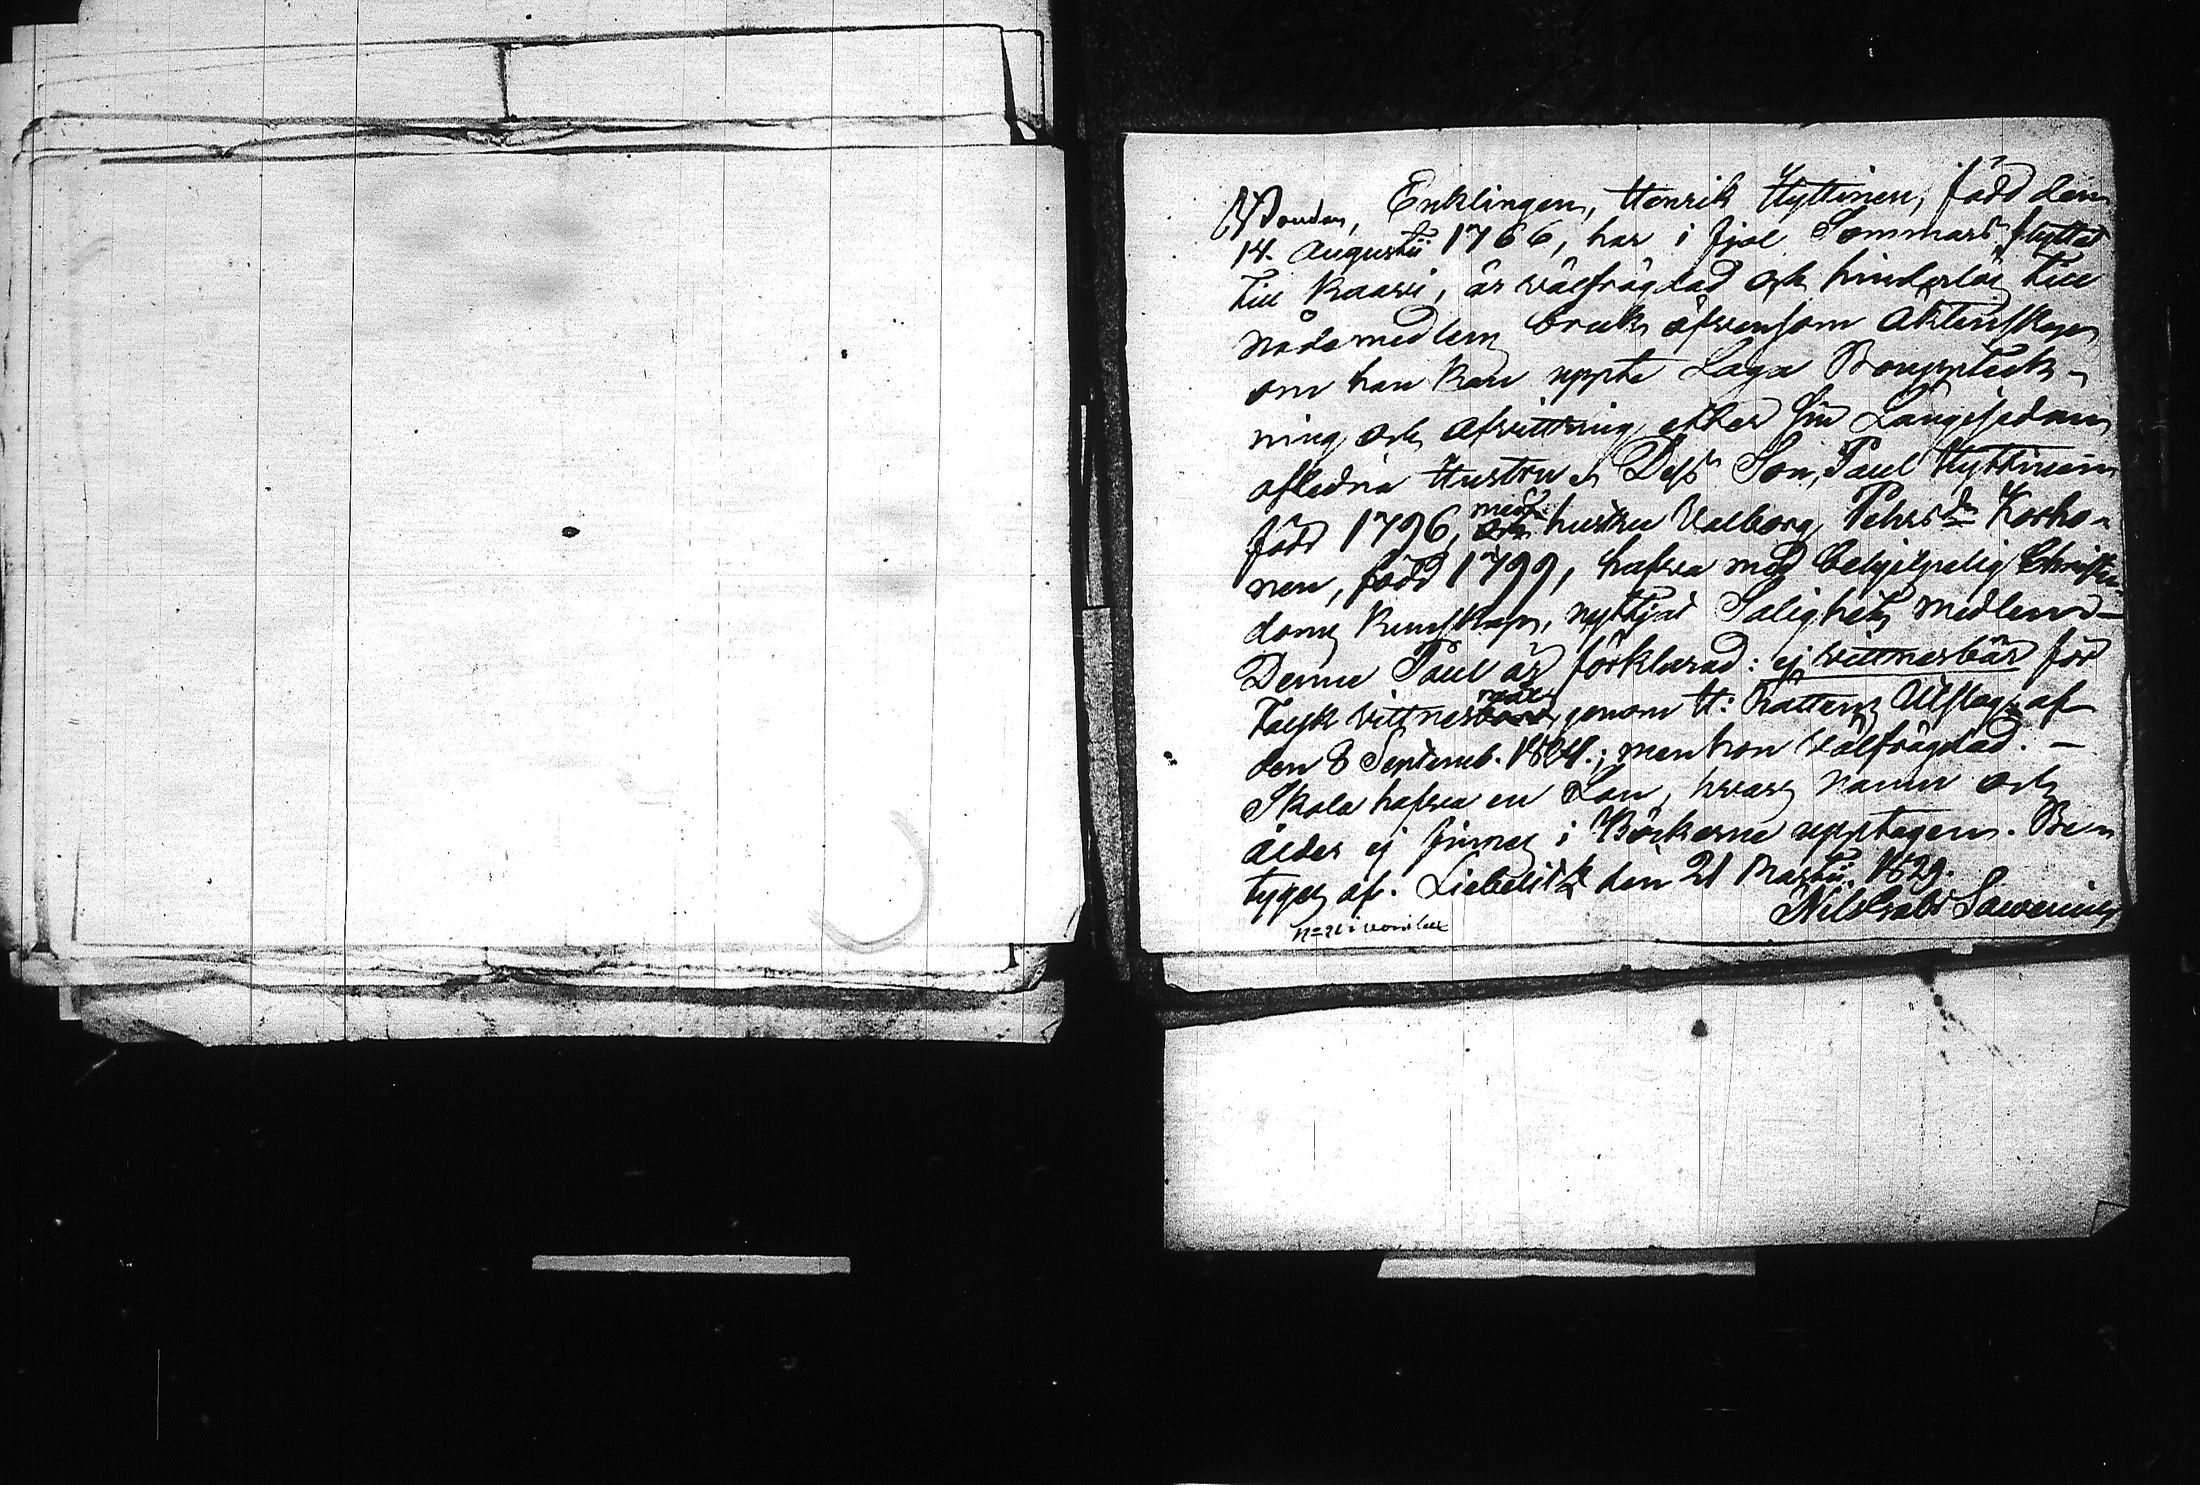 Bonden, Enklingen, Henrik Hyttinen, född den
14. Augustii 1766, har i fjol Sommars flyttat
till Kaavi, är välfrägdad och hinderlös till
nådemedlens bruk äfvensom Äktenskap
om han kan uppte Laga Bouppteck-
ning och Afvittring efter sin Längesedan
afledna Hustru. Dess Son, Paul Hyttinen
född 1796, med hustru Valborg Pehrs dr Korho-
nen, född 1799, hafva med behjelpelig Christen-
doms kunskap, nyttjat Salighets medlen.
Denne Paul är förklarad: ej vittnesbär för
Falsk vittnesmål genom H: Rättens Utslag af
den 8 Septemb. 1824.; men hon välfrägdad. -
Skola hafva en Son, hvars namn och
ålder ej finnes i Böckerne upptagen. Be-
tygas af. Liebelitz den 21 Martii 1829.
Nils Gabr Sawenius